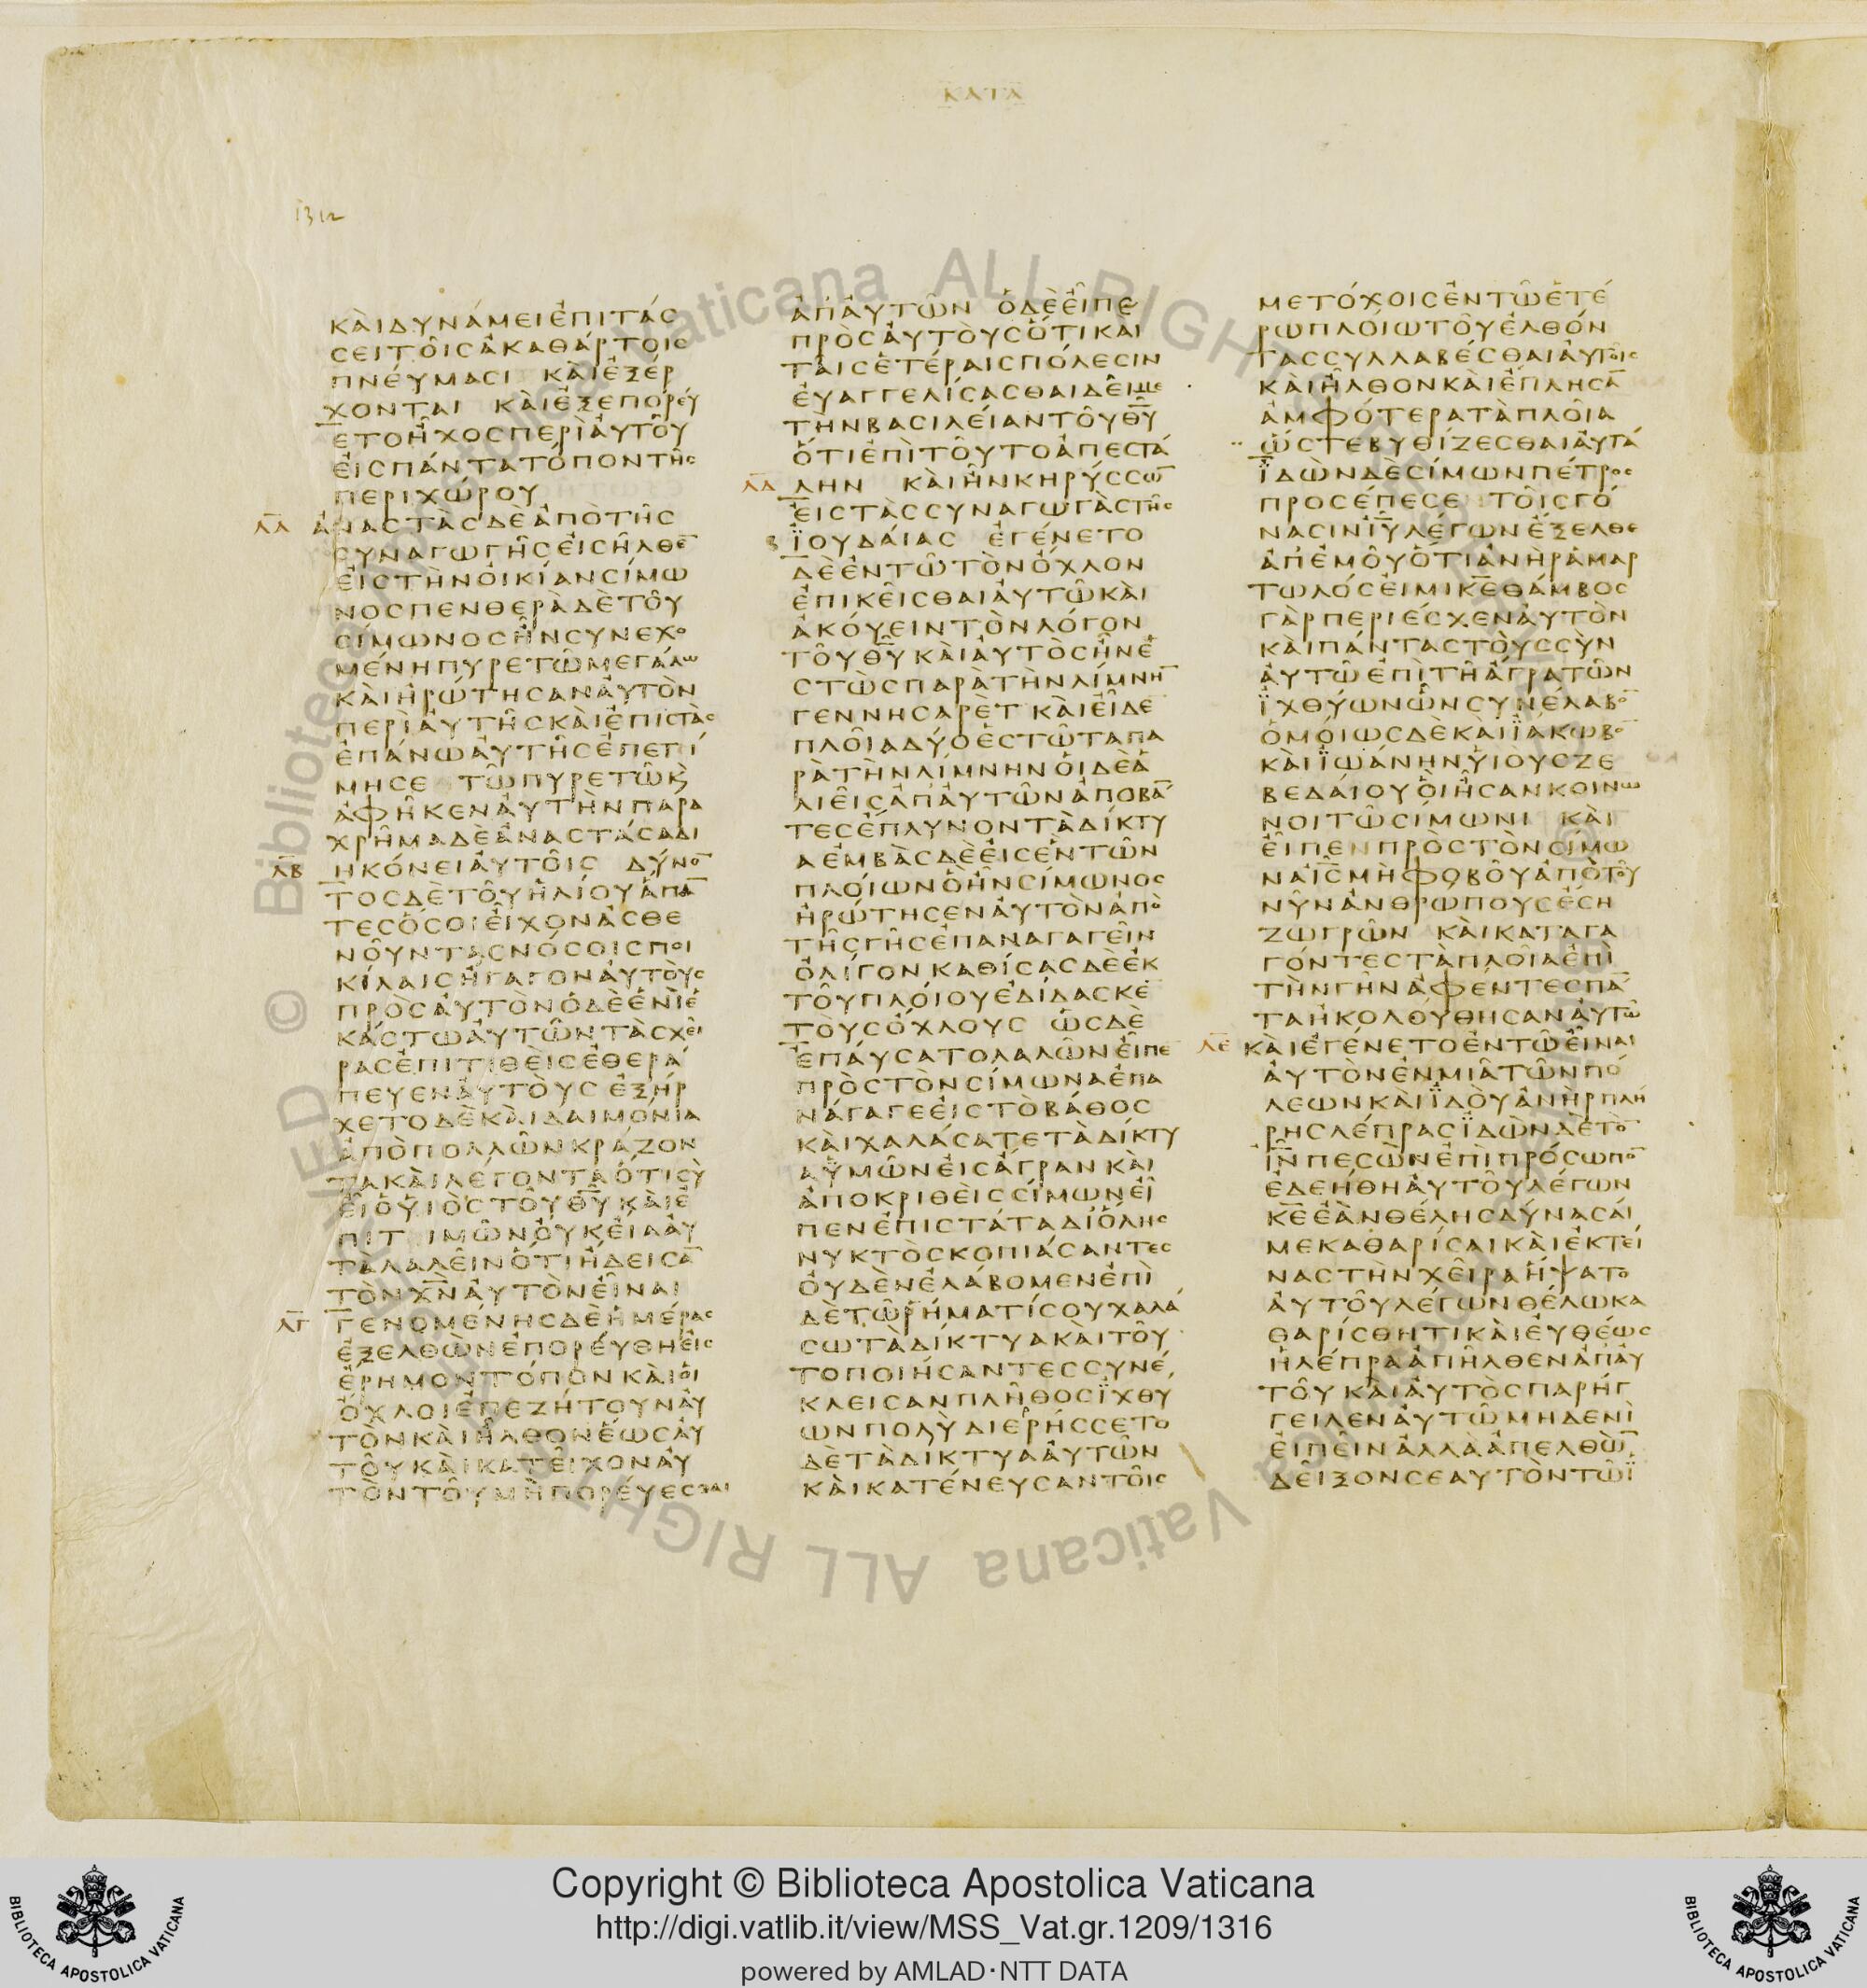 ΚΑΤΑ
1312
ΚΑΙΔΥΝΑΜΕΙΕΠΙΤΑΣ
ΣΕΙΤΟΙΣΑΚΑΘΑΡΤΟΙΣ
ΠΝΕΥΜΑΣΙ ΚΑΙΕΞΕΡ
ΧΟΝΤΑΙ ΚΑΙΕΞΕΠΟΡΕΥ
ΕΤΟΗΧΟΣΠΕΡΙΑΥΤΟΥ
ΕΙΣΠΑΝΤΑΤΟΠΟΝΤΗΣ
ΠΕΡΙΧΩΡΟΥ
ΛΑ ΑΝΑΣΤΑΣΔΕΑΠΟΤΗΣ
ΣΥΝΑΓΩΓΗΣΕΙΣΗΛΘΕ̅
ΕΙΣΤΗΝΟΙΚΙΑΝΣΙΜΩ
ΝΟΣΠΕΝΘΕΡΑΔΕΤΟΥ
ΣΙΜΩΝΟΣΗΝΣΥΝΕΧΟ
ΜΕΝΗΠΥΡΕΤΩΜΕΓΑΛΩ
ΚΑΙΗΡΩΤΗΣΑΝΑΥΤΟΝ
ΠΕΡΙΑΥΤΗΣΚΑΙΕΠΙΣΤΑΣ
ΕΠΑΝΩΑΥΤΗΣΕΠΕΤΙ
ΜΗΣΕ ΤΩΠΥΡΕΤΩΚ
ΑΦΗΚΕΝΑΥΤΗΝΠΑΡΑ
ΧΡΗΜΑΔΕΑΝΑΣΤΑΣΑΔΙ
ΛΒ ΗΚΟΝΕΙΑΥΤΟΙΣ ΔΥΝΟ̅
ΤΟΣΔΕΤΟΥΗΛΙΟΥΑΠΑ̅
ΤΕΣΟΣΟΙΕΙΧΟΝΑΣΘΕ
ΝΟΥΝΤΑΣΝΟΣΟΙΣΠΟΙ
ΚΙΛΑΙΣΗΓΑΓΟΝΑΥΤΟΥΣ
ΠΡΟΣΑΥΤΟΝΟΔΕΕΝΙΕ
ΚΑΣΤΩΑΥΤΩΝΤΑΣΧΕΙ
ΡΑΣΕΠΙΤΙΘΕΙΣΕΘΕΡΑ
ΠΕΥΕΝΑΥΤΟΥΣ ΕΞΗΡ
ΧΕΤΟΔΕΚΑΙΔΑΙΜΟΝΙΑ
ΑΠΟΠΟΛΛΩΝΚΡΑΖΟΝ
ΤΑΚΑΙΛΕΓΟΝΤΑΟΤΙΣΥ
ΕΙΟΥΙΟΣΤΟΥΘ̅Υ̅ΚΑΙΕ
ΠΙΤΙΜΩΝΟΥΚΕΙΑΑΥ
ΤΑΛΑΛΕΙΝΟΤΙΗΔΕΙΣΑ̅
ΤΟΝΧ̅Ν̅ΑΥΤΟΝΕΙΝΑΙ
ΛΓ ΓΕΝΟΜΕΝΗΣΔΕΗΜΕΡΑΣ
ΕΞΕΛΘΩΝΕΠΟΡΕΥΘΗΕΙΣ
ΕΡΗΜΟΝΤΟΠΟΝΚΑΙΟΙ
ΟΧΛΟΙΕΠΕΖΗΤΟΥΝΑΥ
ΤΟΝΚΑΙΗΛΘΟΝΕΩΣΑΥ
ΤΟΥΚΑΙΚΑΤΕΙΧΟΝΑΥ
ΤΟΝΤΟΥΜΗΠΟΡΕΥΕΣΘΑΙ
ΑΠΑΥΤΩΝ ΟΔΕΕΙΠΕ
ΠΡΟΣΑΥΤΟΥΣΟΤΙΚΑΙ
ΤΑΙΣΕΤΕΡΑΙΣΠΟΛΕΣΙΝ
ΕΥΑΓΓΕΛΙΣΑΣΘΑΙΔΕΙΜΕ
ΤΗΝΒΑΣΙΛΕΙΑΝΤΟΥΘ̅Υ̅
ΟΤΙΕΠΙΤΟΥΤΟΑΠΕΣΤΑ
ΛΔ ΛΗΝ ΚΑΙΗΝΚΗΡΥΣΣΩ̅
ΕΙΣΤΑΣΣΥΝΑΓΩΓΑΣΤΗΣ
Β ΪΟΥΔΑΙΑΣ ΕΓΕΝΕΤΟ
ΔΕΕΝΤΩΤΟΝΟΧΛΟΝ
ΕΠΙΚΕΙΣΘΑΙΑΥΤΩΚΑΙ
ΑΚΟΥΕΙΝΤΟΝΛΟΓΟΝ
ΤΟΥΘ̅Υ̅ΚΑΙΑΥΤΟΣΗΝΕ
ΣΤΩΣΠΑΡΑΤΗΝΛΙΜΝΗ̅
ΓΕΝΝΗΣΑΡΕΤ ΚΑΙΕΙΔΕ
ΠΛΟΙΑΔΥΟΕΣΤΩΤΑΠΑ
ΡΑΤΗΝΛΙΜΝΗΝΟΙΔΕΑ
ΛΙΕΙΣΑΠΑΥΤΩΝΑΠΟΒΑ̅
ΤΕΣΕΠΛΥΝΟΝΤΑΔΙΚΤΥ
ΑΕΜΒΑΣΔΕΕΙΣΕΝΤΩΝ
ΠΛΟΙΩΝΟΗΝΣΙΜΩΝΟΣ
ΗΡΩΤΗΣΕΝΑΥΤΟΝΑΠΟ
ΤΗΣΓΗΣΕΠΑΝΑΓΑΓΕΙΝ
ΟΛΙΓΟΝΚΑΘΙΣΑΣΔΕΕΚ
ΤΟΥΠΛΟΙΟΥΕΔΙΔΑΣΚΕ
ΤΟΥΣΟΧΛΟΥΣ ΩΣΔΕ
ΕΠΑΥΣΑΤΟΛΑΛΩΝΕΙΠΕ
ΠΡΟΣΤΟΝΣΙΜΩΝΑΕΠΑ
ΝΑΓΑΓΕΕΙΣΤΟΒΑΘΟΣ
ΚΑΙΧΑΛΑΣΑΤΕΤΑΔΙΚΤΥ
ΑΫΜΩΝΕΙΣΑΓΡΑΝΚΑΙ
ΑΠΟΚΡΙΘΕΙΣΣΙΜΩΝΕΙ
ΠΕΝΕΠΙΣΤΑΤΑΔΙΟΛΗΣ
ΝΥΚΤΟΣΚΟΠΙΑΣΑΝΤΕΣ
ΟΥΔΕΝΕΛΑΒΟΜΕΝΕΠΙ
ΔΕΤΩΡΗΜΑΤΙΣΟΥΧΑΛΑ
ΣΩΤΑΔΙΚΤΥΑΚΑΙΤΟΥ
ΤΟΠΟΙΗΣΑΝΤΕΣΣΥΝΕ
ΚΛΕΙΣΑΝΠΛΗΘΟΣΪΧΘΥ
ΩΝΠΟΛΥΔΙΕΡΗΣΣΕΤΟ
ΔΕΤΑΔΙΚΤΥΑΑΥΤΩΝ
ΚΑΙΚΑΤΕΝΕΥΣΑΝΤΟΙΣ
ΜΕΤΟΧΟΙΣΕΝΤΩΕΤΕ
ΡΩΠΛΟΙΩΤΟΥΕΛΘΟΝ
ΤΑΣΣΥΛΛΑΒΕΣΘΑΙΑΥΤΟΙΣ
ΚΑΙΗΛΘΟΝΚΑΙΕΠΛΗΣΑ̅
ΑΜΦΟΤΕΡΑΤΑΠΛΟΙΑ
ΩΣΤΕΒΥΘΙΖΕΣΘΑΙΑΥΤΑ
ΪΔΩΝΔΕΣΙΜΩΝΠΕΤΡΟΣ
ΠΡΟΣΕΠΕΣΕ ΤΟΙΣΓΟ
ΝΑΣΙΝΙ̅Υ̅ΛΕΓΩΝΕΞΕΛΘΕ
ΑΠΕΜΟΥΟΤΙΑΝΗΡΑΜΑΡ
ΤΩΛΟΣΕΙΜΙΚ̅Ε̅ΘΑΜΒΟΣ
ΓΑΡΠΕΡΙΕΣΧΕΝΑΥΤΟΝ
ΚΑΙΠΑΝΤΑΣΤΟΥΣΣΥΝ
ΑΥΤΩΕΠΙΤΗΑΓΡΑΤΩΝ
ΪΧΘΥΩΝΩΝΣΥΝΕΛΑΒΟ̅
ΟΜΟΙΩΣΔΕΚΑΙΪΑΚΩΒΟ̅
ΚΑΙΪΩΑΝΗΝΥΙΟΥΣΖΕ
ΒΕΔΑΙΟΥΟΙΗΣΑΝΚΟΙΝΩ
ΝΟΙΤΩΣΙΜΩΝΙ ΚΑΙ
ΕΙΠΕΝΠΡΟΣΤΟΝΣΙΜΩ
ΝΑΙ̅Σ̅ΜΗΦΟΒΟΥΑΠΟΤΟΥ
ΝΥΝΑΝΘΡΩΠΟΥΣΕΣΗ
ΖΩΓΡΩΝ ΚΑΙΚΑΤΑΓΑ
ΓΟΝΤΕΣΤΑΠΛΟΙΑΕΠΙ
ΤΗΝΓΗΝΑΦΕΝΤΕΣΠΑ̅
ΤΑΗΚΟΛΟΥΘΗΣΑΝΑΥΤΩ
ΛΕ ΚΑΙΕΓΕΝΕΤΟΕΝΤΩΕΙΝΑΙ
ΑΥΤΟΝΕΝΜΙΑΤΩΝΠΟ
ΛΕΩΝΚΑΙΪΔΟΥΑΝΗΡΠΛΗ
ΡΗΣΛΕΠΡΑΣΪΔΩΝΔΕΤΟ̅
Ι̅Ν̅ΠΕΣΩΝΕΠΙΠΡΟΣΩΠΟ̅
ΕΔΕΗΘΗΑΥΤΟΥΛΕΓΩΝ
Κ̅Ε̅ΕΑΝΘΕΛΗΣΔΥΝΑΣΑΙ
ΜΕΚΑΘΑΡΙΣΑΙΚΑΙΕΚΤΕΙ
ΝΑΣΤΗΝΧΕΙΡΑΗΨΑΤΟ
ΑΥΤΟΥΛΕΓΩΝΘΕΛΩΚΑ
ΘΑΡΙΣΘΗΤΙΚΑΙΕΥΘΕΩΣ
ΗΛΕΠΡΑΑΠΗΛΘΕΝΑΠΑΥ
ΤΟΥΚΑΙΑΥΤΟΣΠΑΡΗΓ
ΓΕΙΛΕΝΑΥΤΩΜΗΔΕΝΙ
ΕΙΠΕΙΝΑΛΛΑΑΠΕΛΘΩ̅
ΔΕΙΞΟΝΣΕΑΥΤΟΝΤΩΪ
© Biblioteca Apostolica Vaticana ALL RIGHTS RESERVED
Copyright © Biblioteca Apostolica Vaticana
http://digi.vatlib.it/view/MSS_Vat.gr.1209/1316
powered by AMLAD·NTT DATA
BIBLIOTECA APOSTOLICA VATICANA
BIBLIOTECA APOSTOLICA VATICANA